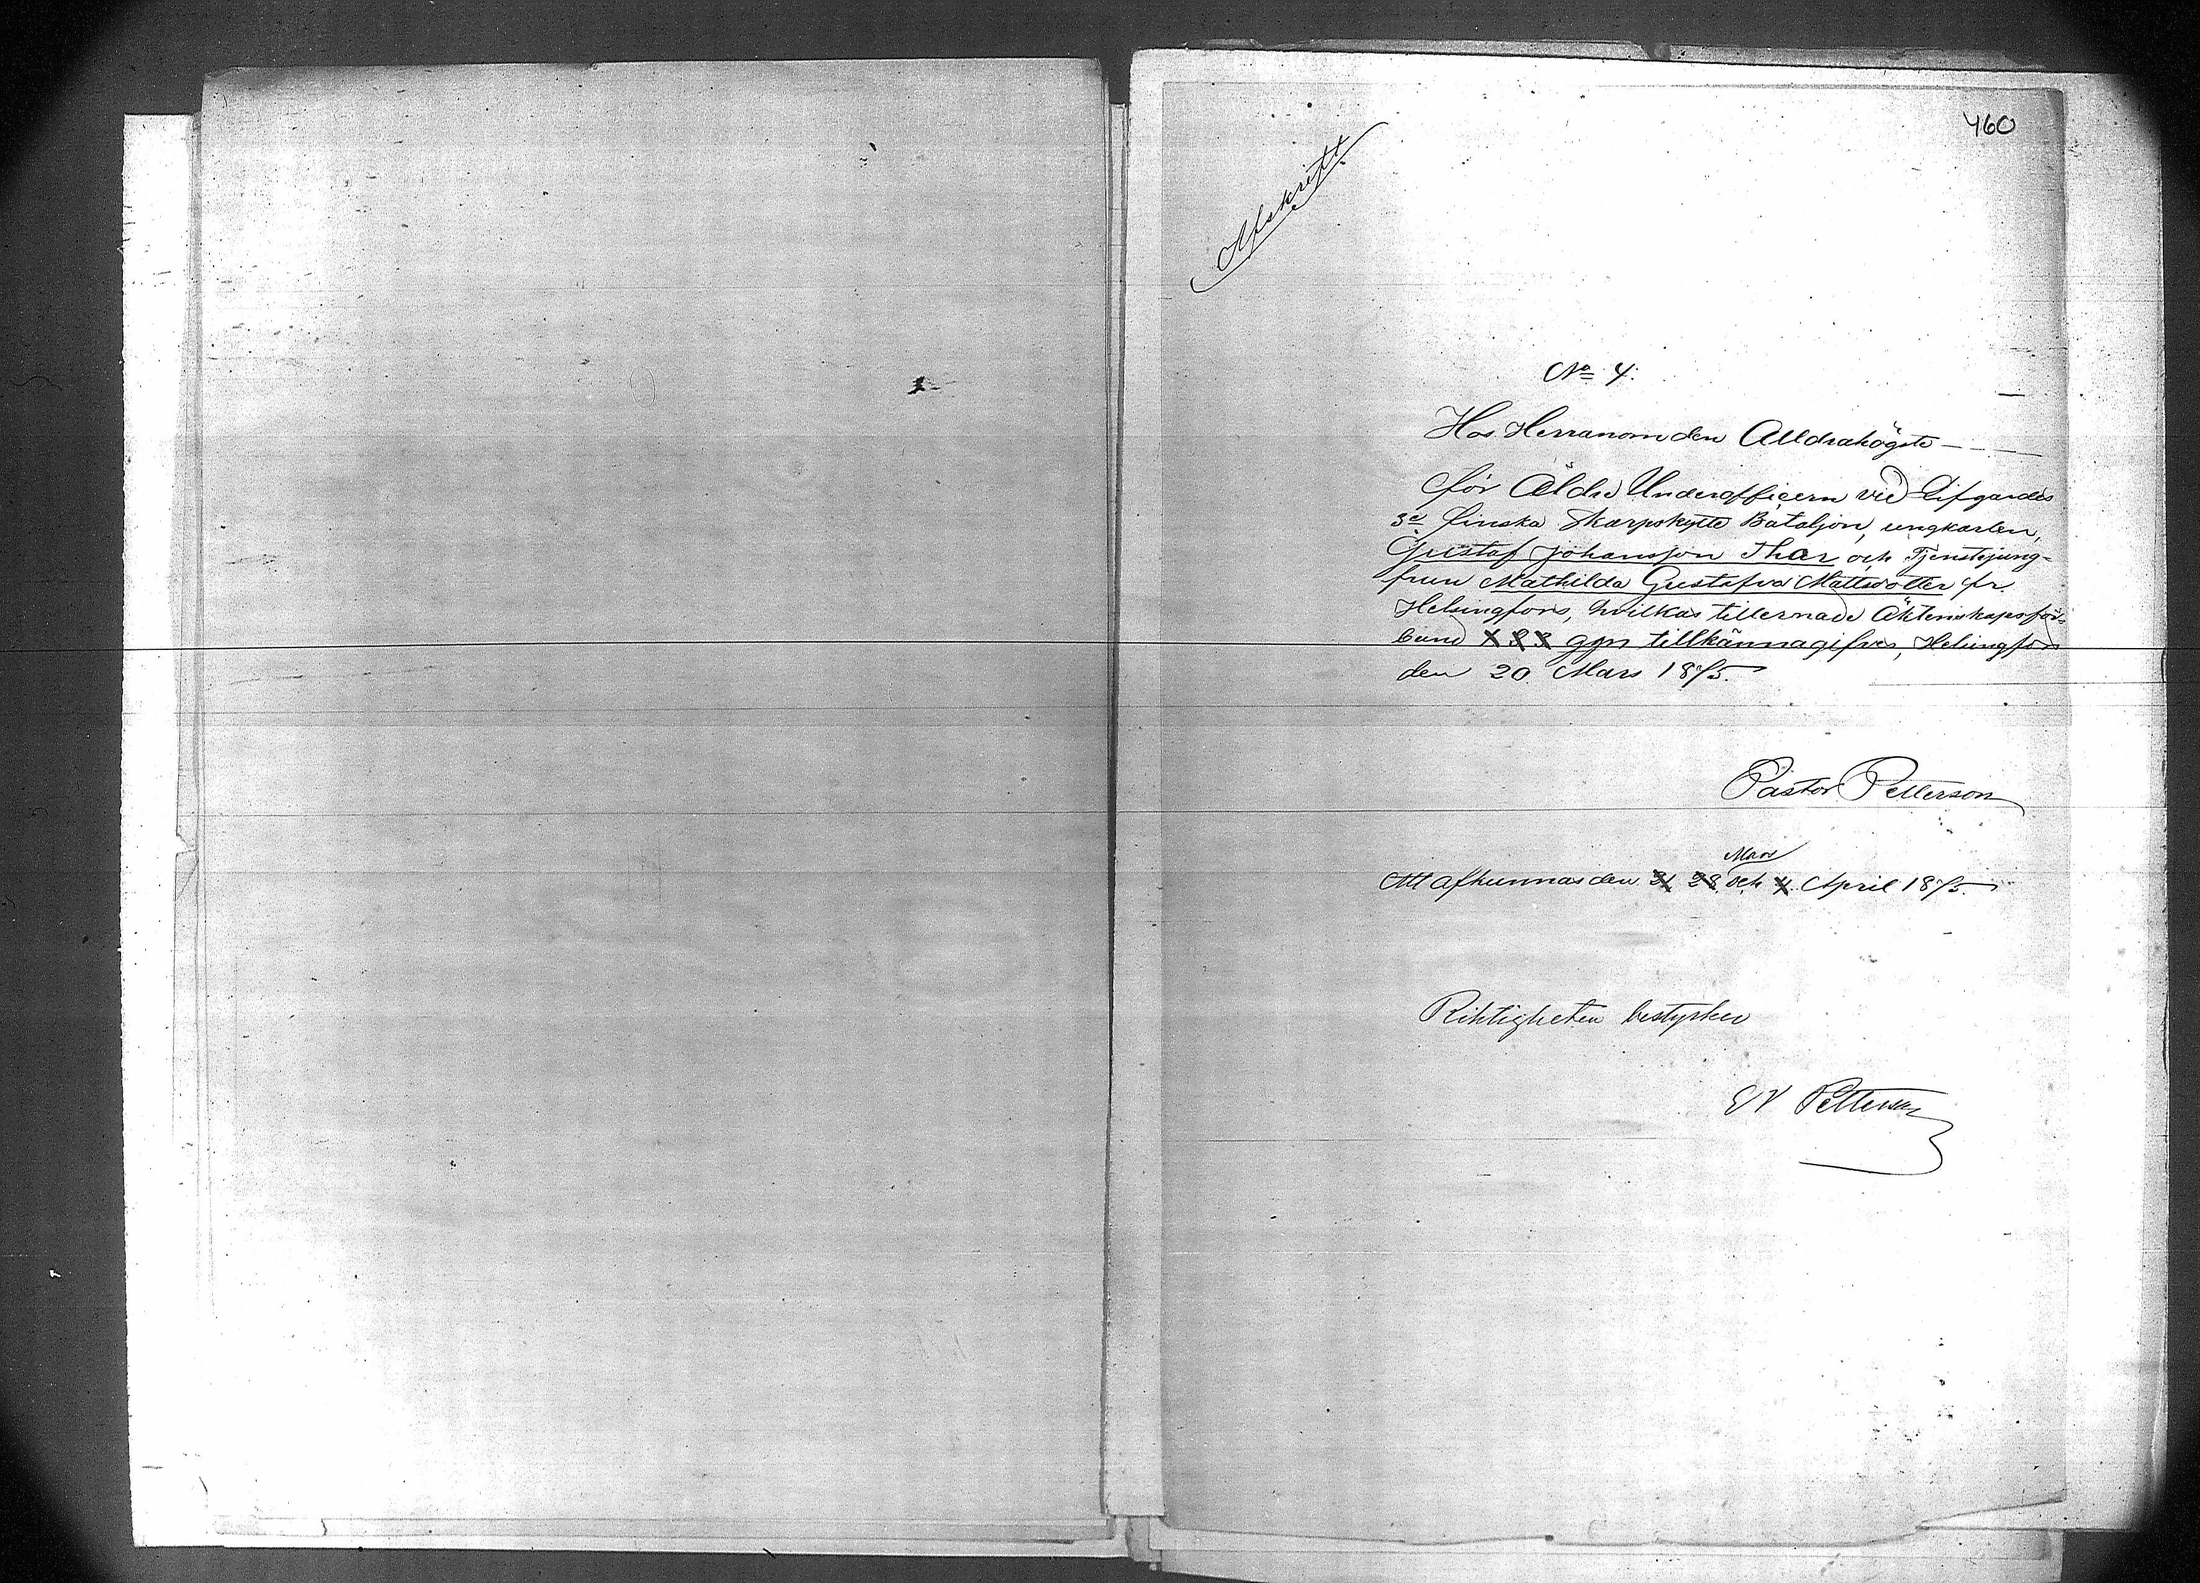 460
Afskrift
No 4.
Hos Herranom den Alldrahögste
för Äldre Underofficern vid Lifgardes
3e Finska Skarpskytte Bataljon, ungkarlen,
Gustaf Johansson Thar och Tjenstejung-
frun Mathilda Gustafva Mattsdotter fr.
Helsingfors, hvilkas tillernade Äktenskapsför-
bund ggn tillkännagifves, Helsingfors
den 20 Mars 1875.
Pastor Petterson
Mars
Att afkunnas den 21 28 och 4 April 1875.
Riktigheten bestyrker
Petterson